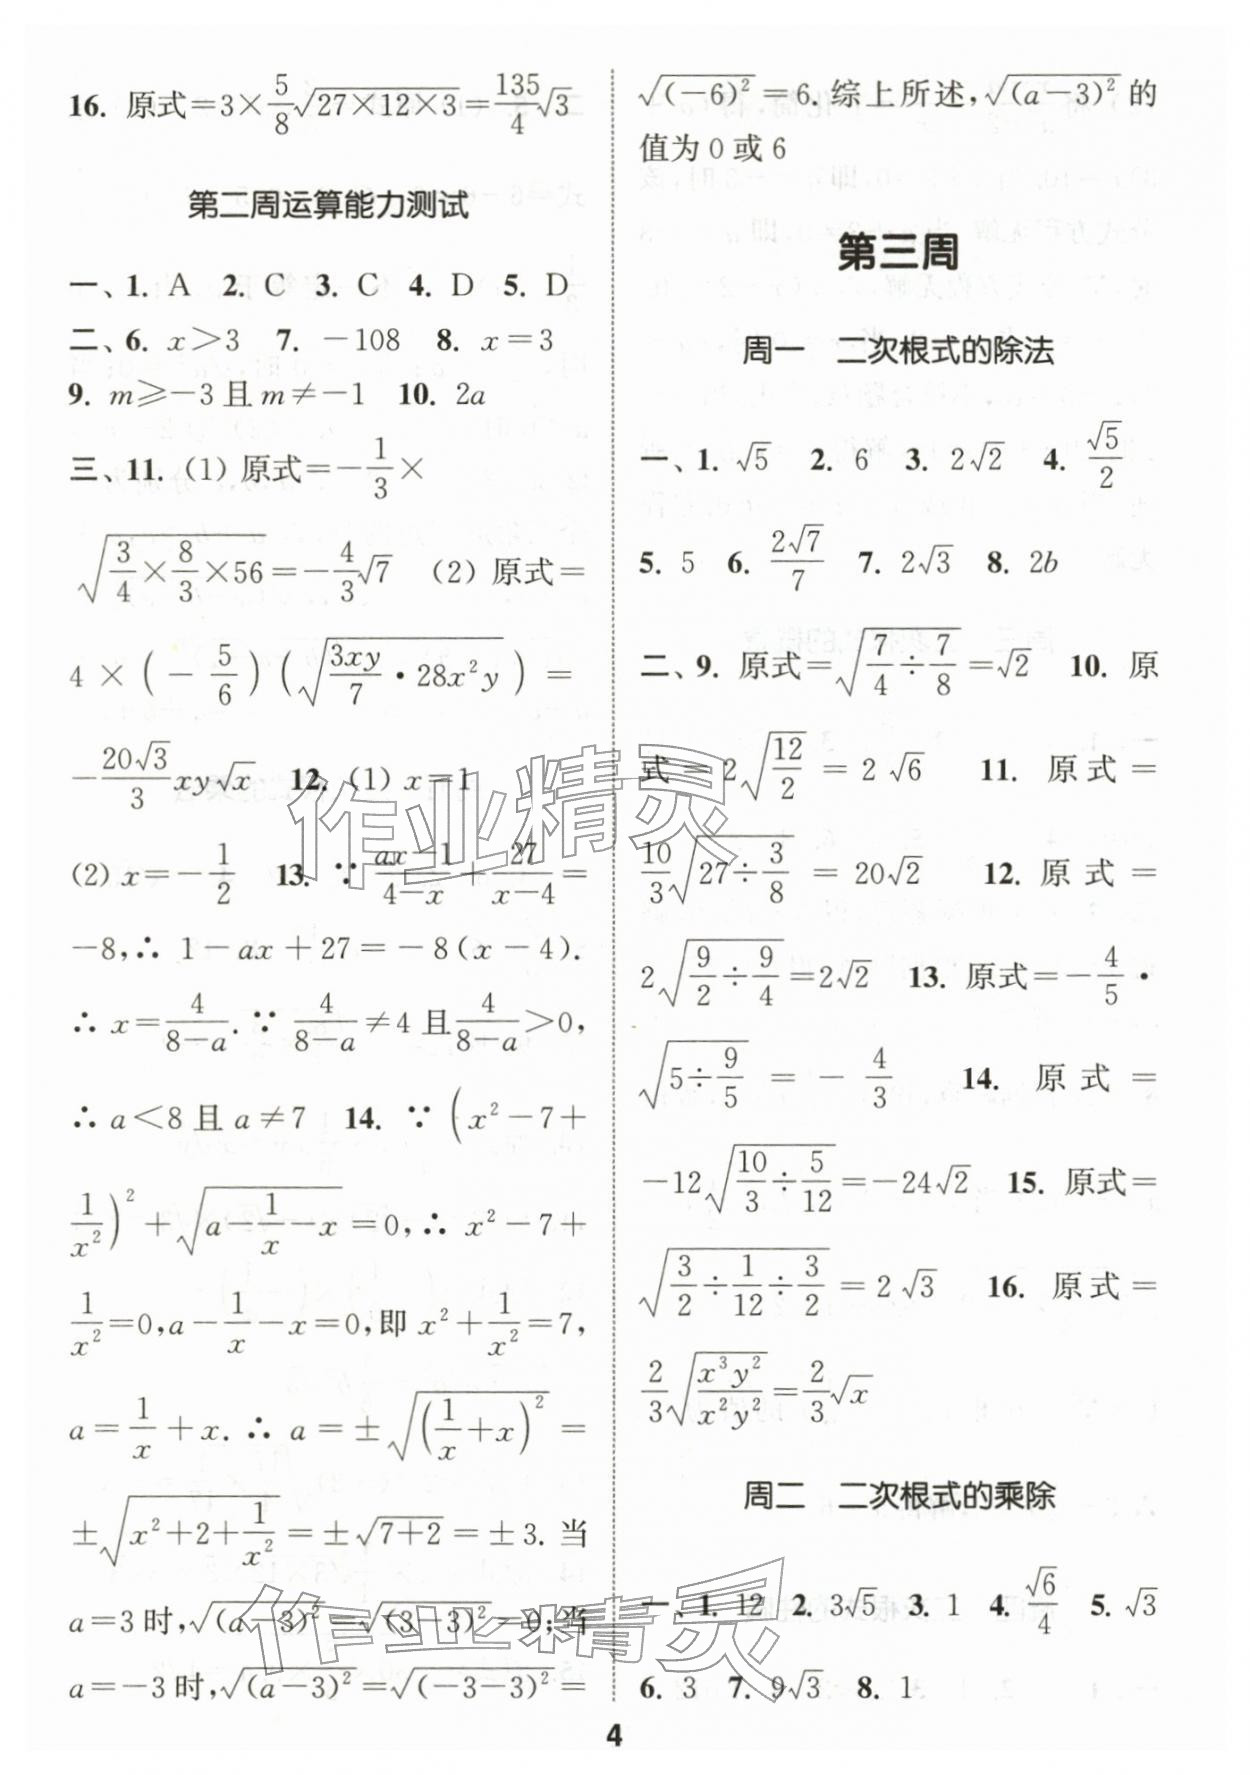 16. 原式=3×5/8√(27×12×3)=135/4√3
第二周运算能力测试
一、1. A 2. C 3. C 4. D 5. D
二、6. x>3 7. −108 8. x=3
9. m≥−3且m≠−1 10. 2a
三、11. (1) 原式=−1/3×
√(3/4×8/3×56)=−4/3√7 (2) 原式=
4×(−5/6)(√(3xy/7·28x²y))=
−20√3/3xy√x 12. (1) x=1
(2) x=−1/2 13. ∵ (ax−1)/(4−x)+27/(x−4)=
−8,∴ 1−ax+27=−8(x−4).
∴ x=4/(8−a). ∵ 4/(8−a)≠4且4/(8−a)>0,
∴ a<8且a≠7 14. ∵ (x²−7+
1/x²)²+√(a−1/x−x)=0,∴ x²−7+
1/x²=0,a−1/x−x=0,即x²+1/x²=7,
a=1/x+x. ∴ a=±√((1/x+x)²)=
±√(x²+2+1/x²)=±√(7+2)=±3. 当
a=3时,√((a−3)²)=√((3−3)²)=0;当
a=−3时,√((a−3)²)=√((−3−3)²)=
√((−6)²)=6.综上所述,√((a−3)²)的
值为0或6
第三周
周一 二次根式的除法
一、1. √5 2. 6 3. 2√2 4. √5/2
5. 5 6. 2√7/7 7. 2√3 8. 2b
二、9. 原式=√(7/4÷7/8)=√2 10. 原
式=2√(12/2)=2√6 11. 原式=
10/3√(27÷3/8)=20√2 12. 原式=
2√(9/2÷9/4)=2√2 13. 原式=−4/5·
√(5÷9/5)=−4/3 14. 原式=
−12√(10/3÷5/12)=−24√2 15. 原式=
√(3/2÷1/12÷3/2)=2√3 16. 原式=
2/3√(x³y²/x²y²)=2/3√x
周二 二次根式的乘除
一、1. 12 2. 3√5 3. 1 4. √6/4 5. √3
6. 3 7. 9√3 8. 1
4
作业精灵
作业精灵